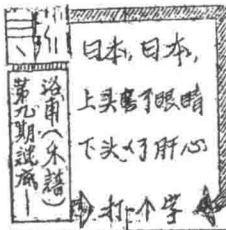 日本，日本，
上头害了眼睛
下头 了肝心
打一个字
洛甫（ 譜）
第九期謎底—